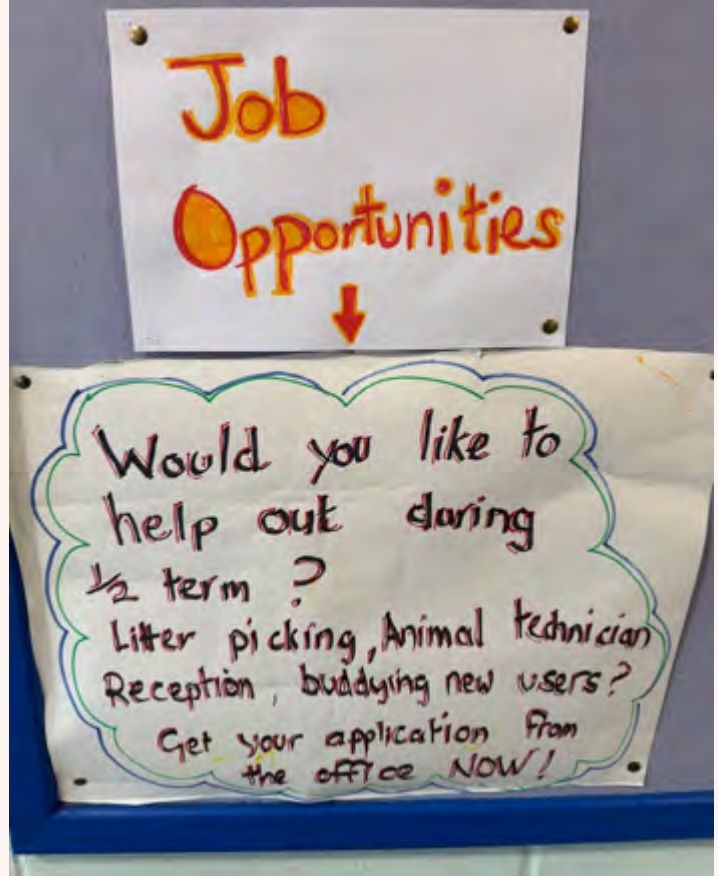 Job
Opportunities
Would you like to
help out during
1/2 term ?
Litter picking, Animal technician
Reception, buddying new users?
Get your application from
the office NOW!